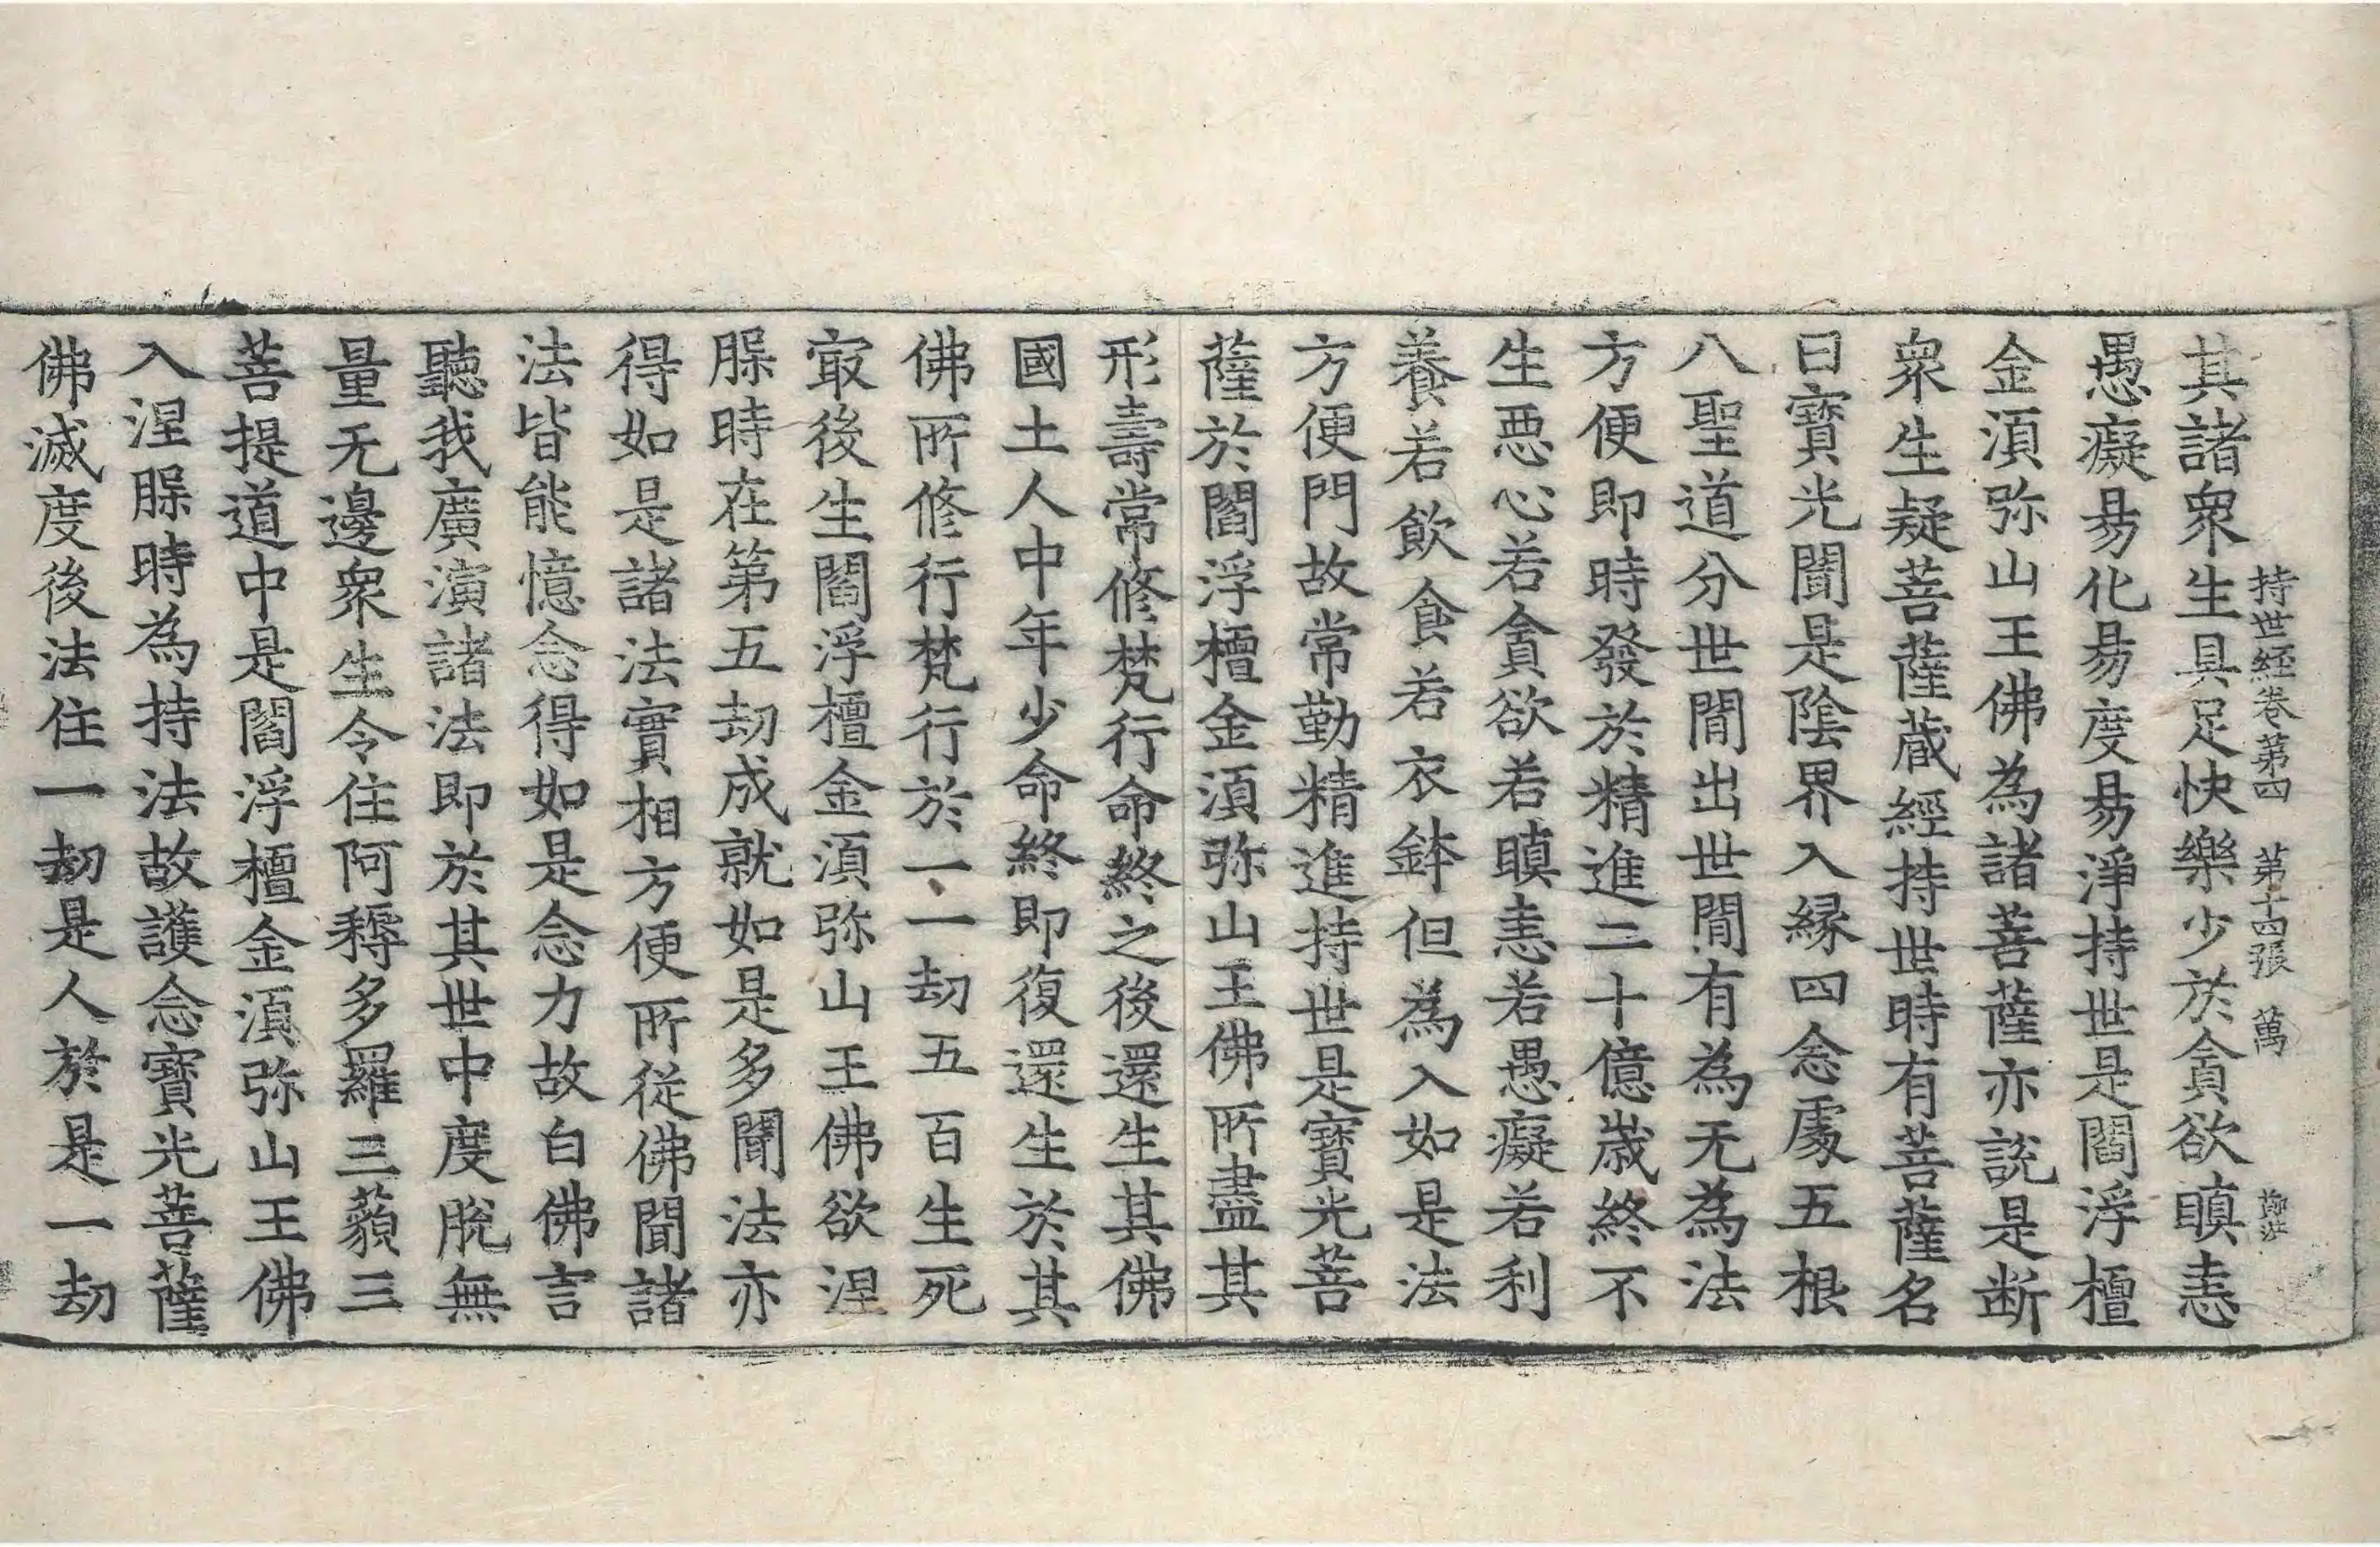 持世經卷第四　第十四張　萬
其諸衆生具足快樂少於貪欲瞋恚
愚癡易化易度易淨持世是閻浮檀
金湏弥山王佛為諸菩薩亦說是断
衆生疑菩薩蔵經持世時有菩薩名
曰寶光聞是陰界入緣四念處五根
八聖道分世間出世間有為无為法
方便即時發於精進二十億歲終不
生悪心若貪欲若瞋恚若愚癡若利
養若飲食若衣鉢但為入如是法
方便門故常勤精進持世是寶光菩
薩於閻浮檀金湏弥山王佛所盡其
形壽常修梵行命終之後還生其佛
國土人中年少命終即復還生於其
佛所修行梵行於一一劫五百生死
㝡後生閻浮檀金湏弥山王佛欲涅
槃時在第五劫成就如是多聞法亦
得如是諸法實相方便所從佛聞諸
法皆能憶念得如是念力故白佛言
聽我廣演諸法即於其世中度脫無
量无邊衆生令住阿耨多羅三藐三
菩提道中是閻浮檀金湏弥山王佛
入涅槃時為持法故護念寶光菩薩
佛滅度後法住一劫是人於是一劫